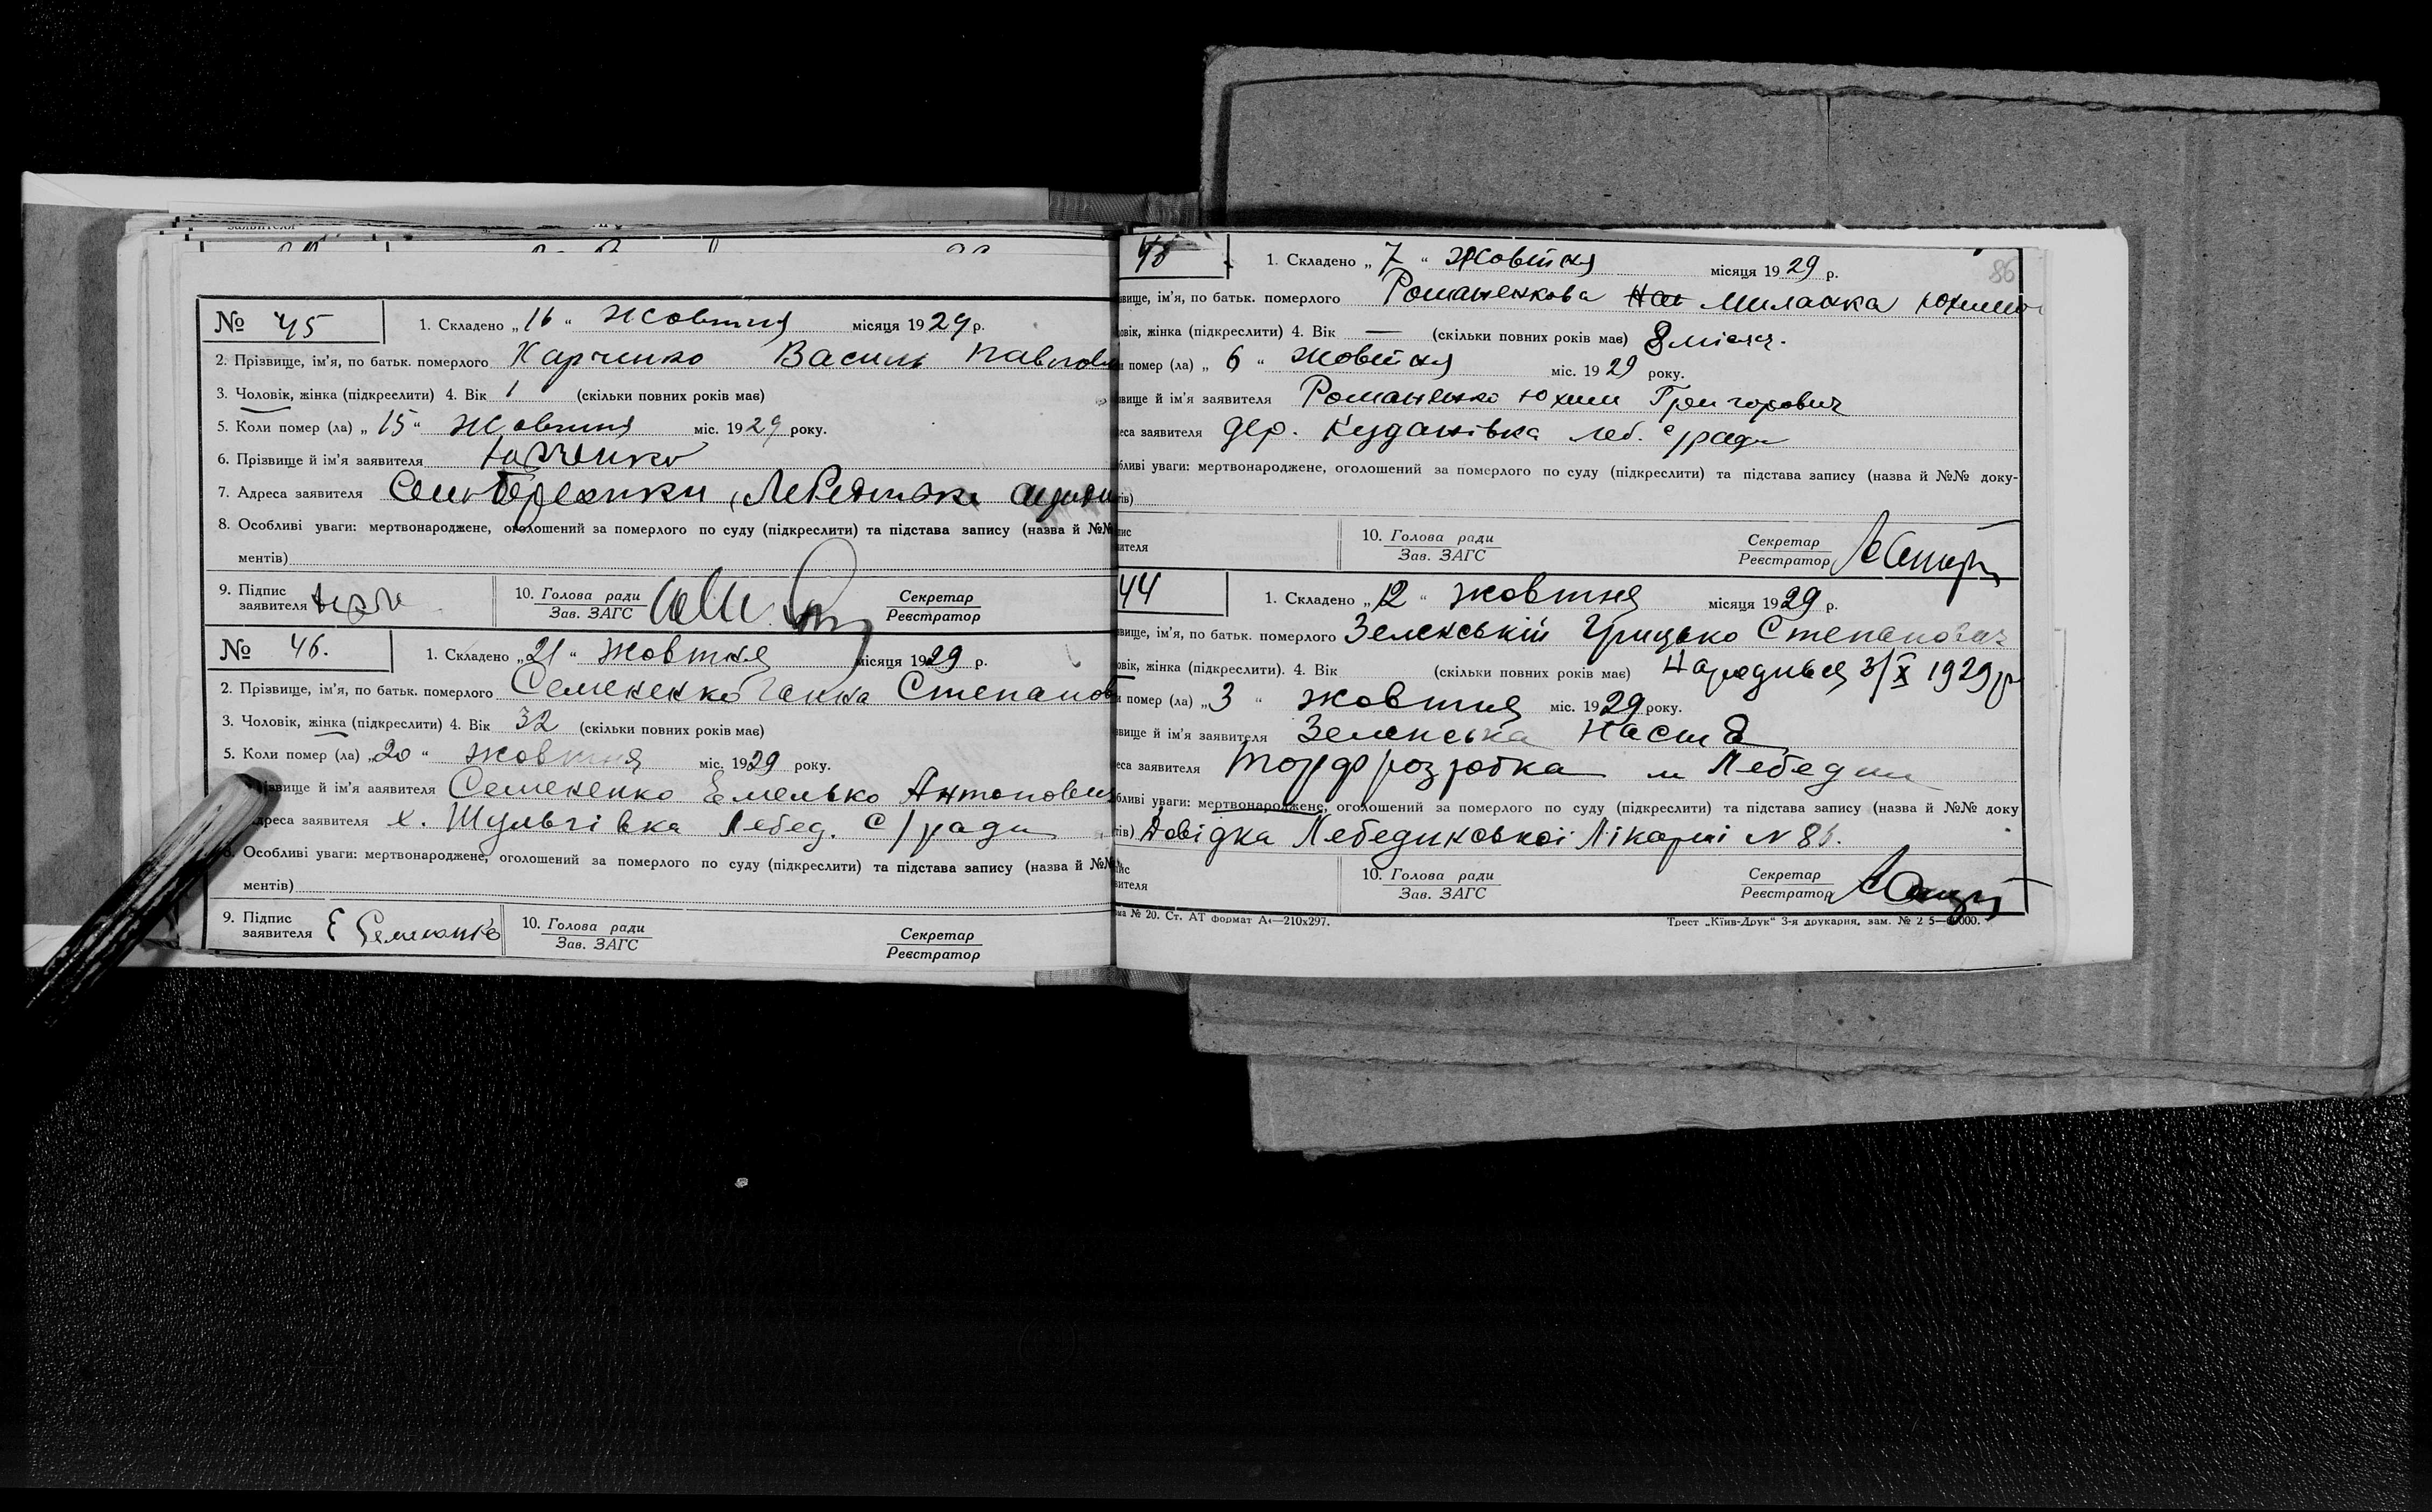 № 45
1. Складено „ 16 “ жовтня місяця 1929 р.
2. Прізвище, ім'я, по батьк. померлого Карченко Василь Павлови
3. Чоловік, жінка (підкреслити) 4. Вік 1 (скільки повних років має)
5. Коли помер (ла) „ 15 “ жовтня міс. 1929 року.
6. Прізвище й ім'я заявителя
7. Адреса заявителя
8. Особливі уваги: мертвонароджене, оголошений за померлого по суду (підкреслити) та підстава запису (назва й №№
ментів)
9. Підпис заявителя 10. Голова ради Зав. ЗАГС Секретар Реєстратор
№ 46.
1. Складено „ 21 “ жовтня місяця 1929 р.
2. Прізвище, ім'я, по батьк. померлого Семененко Ганна Степанов
3. Чоловік, жінка (підкреслити) 4. Вік 32 (скільки повних років має)
5. Коли помер (ла) „ 20 “ жовтня міс. 1929 року.
звище й ім'я заявителя Семененко Емелько Антонович
дреса заявителя х. Шульгівка Лебед. с/ради
8. Особливі уваги: мертвонароджене, оголошений за померлого по суду (підкреслити) та підстава запису (назва й №№
ментів)
9. Підпис заявителя Е Семененко 10. Голова ради Зав. ЗАГС Секретар Реєстратор
86
1. Складено „ 7 “ Жовтня місяця 1929 р.
вище, ім'я, по батьк. померлого Романенкова Миланка Юхимо
овік, жінка (підкреслити) 4. Вік — (скільки повних років має) 8 місяц.
и помер (ла) „ 6 “ Жовтня міс. 1929 року.
звище й ім'я заявителя Романенко Юхим Григорович
еса заявителя дер. Кудашівка леб. с/ради
бливі уваги: мертвонароджене, оголошений за померлого по суду (підкреслити) та підстава запису (назва й №№ доку-
тів)
пис вителя 10. Голова ради Зав. ЗАГС Секретар Реєстратор
44
1. Складено „ 12 “ жовтня місяця 1929 р.
вище, ім'я, по батьк. померлого Зеленській Грицько Степанович
овік, жінка (підкреслити). 4. Вік (скільки повних років має) Народився 3/X 1929 р
и помер (ла) „ 3 “ жовтня міс. 1929 року.
звище й ім'я заявителя Зеленська Настя
еса заявителя торфорозробка м Лебедин
бливі уваги: мертвонароджене, оголошений за померлого по суду (підкреслити) та підстава запису (назва й №№ доку
тів) Довідка Лебединської Лікарні №
пис вителя 10. Голова ради Зав. ЗАГС Секретар Реєстратор
ма № 20. Ст. АТ Формат А4—210х297. Трест „Київ-Друк“ 3-я друкарня, зам. №